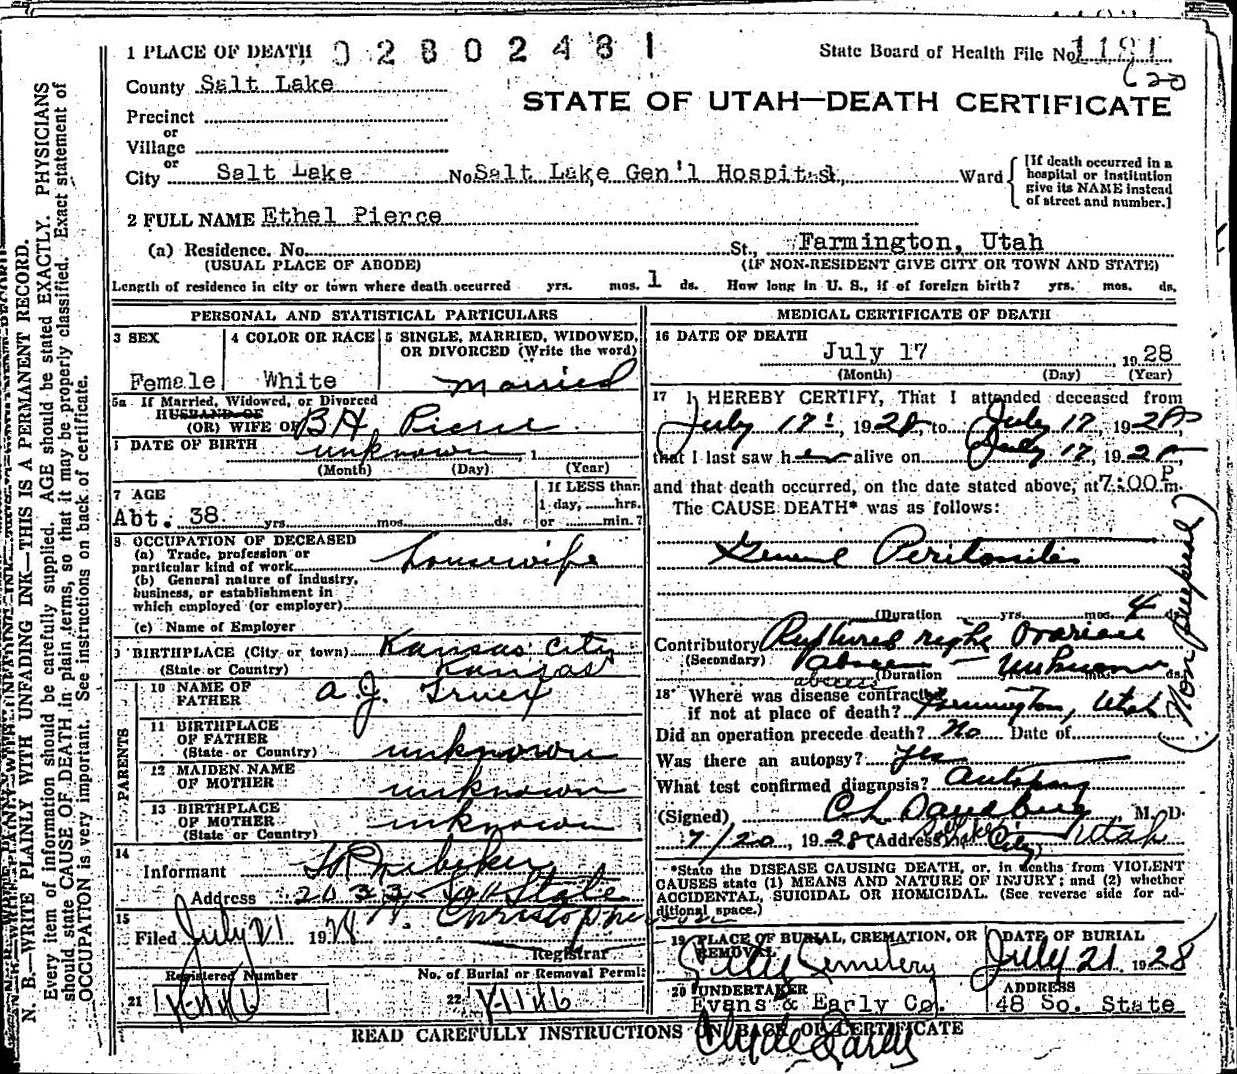 1 PLACE OF DEATH 02802481 State Board of Health File No. 1191
County Salt Lake
STATE OF UTAH—DEATH CERTIFICATE
Precinct
or
Village
or
City Salt Lake No. Salt Lake Gen'l Hospital, Ward
[If death occurred in a hospital or institution give its NAME instead of street and number.]
2 FULL NAME Ethel Pierce
(a) Residence. No. St., Farmington, Utah
(USUAL PLACE OF ABODE) (IF NON-RESIDENT GIVE CITY OR TOWN AND STATE)
Length of residence in city or town where death occurred yrs. mos. 1 ds. How long in U. S., if of foreign birth? yrs. mos. ds.
PERSONAL AND STATISTICAL PARTICULARS
3 SEX
Female
4 COLOR OR RACE
White
5 SINGLE, MARRIED, WIDOWED,
OR DIVORCED (Write the word)
Married
5a If Married, Widowed, or Divorced
HUSBAND OF
(OR) WIFE OF B H Pierce
DATE OF BIRTH unknown, 1
(Month) (Day) (Year)
7 AGE
Abt. 38 yrs mos. ds.
If LESS than
1 day, hrs.
or min.?
8 OCCUPATION OF DECEASED
(a) Trade, profession or
particular kind of work housewife
(b) General nature of industry,
business, or establishment in
which employed (or employer)
(c) Name of Employer
9 BIRTHPLACE (City or town) Kansas City
(State or Country) Kansas
PARENTS
10 NAME OF
FATHER A. J. Truex
11 BIRTHPLACE
OF FATHER
(State or Country) unknown
12 MAIDEN NAME
OF MOTHER unknown
13 BIRTHPLACE
OF MOTHER
(State or Country) unknown
14
Informant
Address 2033 So State
15
Filed July 21 1928 Christopherson
Registrar
Registered Number
21
No. of Burial or Removal Permit
22
MEDICAL CERTIFICATE OF DEATH
16 DATE OF DEATH
July 17 1928
(Month) (Day) (Year)
17 I HEREBY CERTIFY, That I attended deceased from
July 17, 1928, to July 17, 1928
that I last saw her alive on July 17, 1928
and that death occurred, on the date stated above, at 7:00 P m.
The CAUSE DEATH* was as follows:
General Peritonitis
(Duration yrs. mos. 4 ds.
Contributory Ruptured right Ovarian
(Secondary) abscess — unknown
abscess (Duration ds.
(Non puerperal)
18 Where was disease contracted
if not at place of death? Farmington, Utah
Did an operation precede death? No Date of
Was there an autopsy? Yes
What test confirmed diagnosis? autopsy
(Signed) C L M. D.
7/20, 1928 (Address) Salt Lake City Utah
*State the DISEASE CAUSING DEATH, or, in deaths from VIOLENT
CAUSES state (1) MEANS AND NATURE OF INJURY; and (2) whether
ACCIDENTAL, SUICIDAL OR HOMICIDAL. (See reverse side for additional space.)
19 PLACE OF BURIAL, CREMATION, OR
REMOVAL
City Cemetery
DATE OF BURIAL
July 21 1928
20 UNDERTAKER
Evans & Early Co.
ADDRESS
48 So. State
READ CAREFULLY INSTRUCTIONS ON BACK OF CERTIFICATE
N. B.—WRITE PLAINLY WITH UNFADING INK—THIS IS A PERMANENT RECORD.
Every item of information should be carefully supplied. AGE should be stated EXACTLY. PHYSICIANS
should state CAUSE OF DEATH in plain terms, so that it may be properly classified. Exact statement of
OCCUPATION is very important. See instructions on back of certificate.